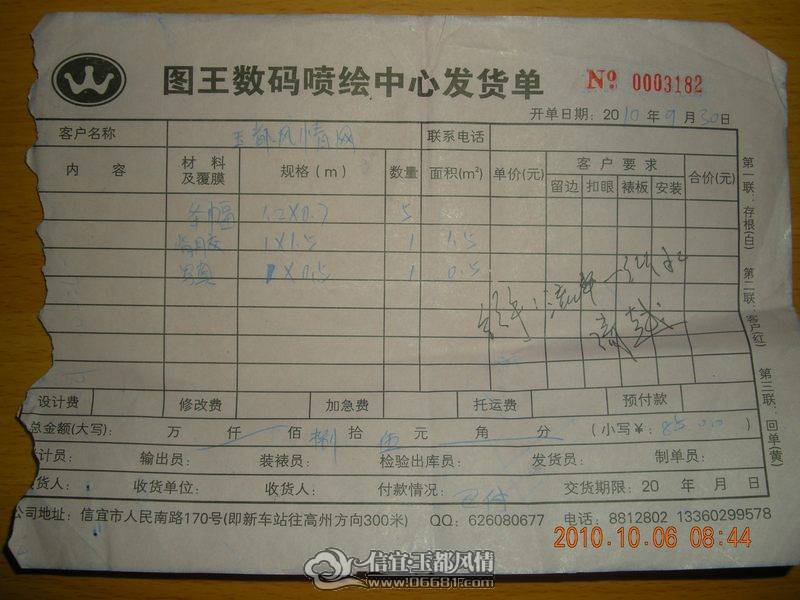 图王数码喷绘中心发货单 № 0003182
开单日期: 2010年9月30日
客户名称 玉都风情网 联系电话
内容 材料及覆膜 规格(m) 数量 面积(m²) 单价(元) 客户要求 合价(元)
留边 扣眼 裱板 安装
条幅 1.2×0.7 5
背胶 1×1.5 1 1.5
写真 1×0.5 1 0.5
设计费 修改费 加急费 托运费 预付款
总金额(大写): 万 仟 佰 捌 拾 伍 元 角 分 (小写¥: 85.00)
计员: 输出员: 装裱员: 检验出库员: 发货员: 制单员:
货人: 收货单位: 收货人: 付款情况: 已付 交货期限: 20 年 月 日
公司地址: 信宜市人民南路170号(即新车站往高州方向300米) QQ: 626080677 电话: 8812802 13360299578
第一联: 存根(白) 第二联: 客户(红) 第三联: 回单(黄)
2010.10.06 08:44
信宜·玉都风情
www.06681.com